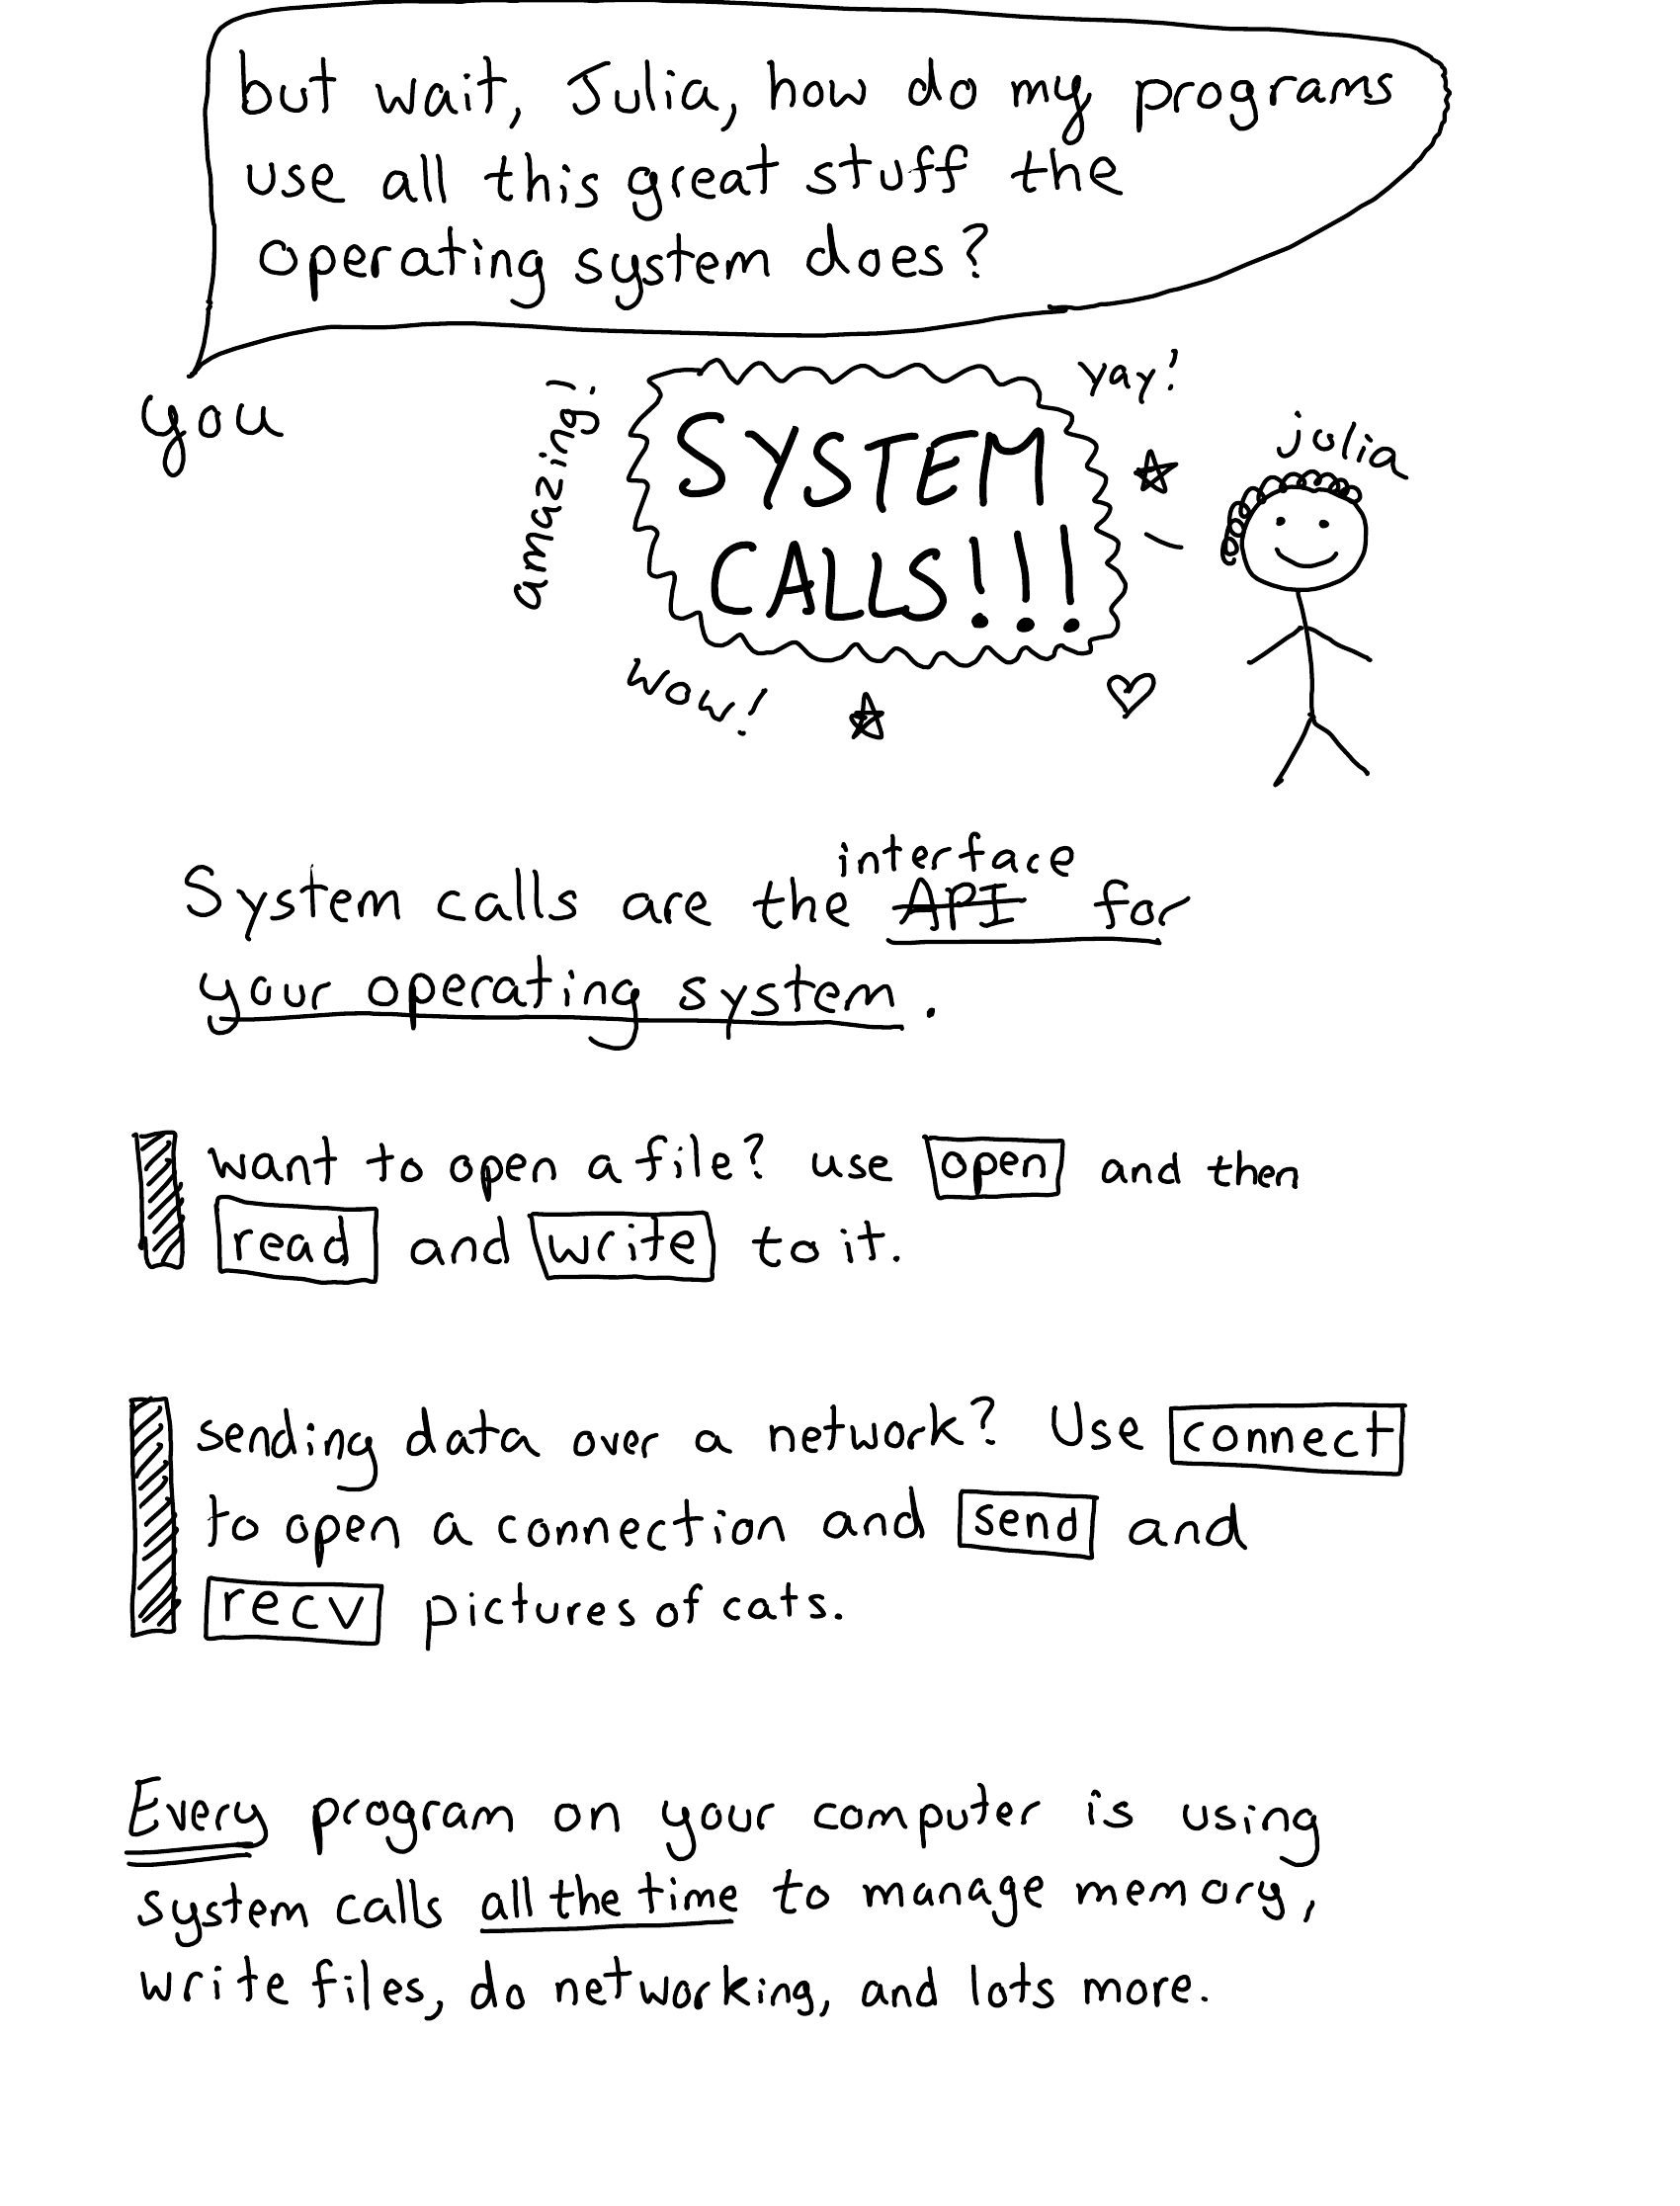 but wait, Julia, how do my programs
use all this great stuff the
operating system does?
you
amazing!
SYSTEM
CALLS!!!
yay!
julia
wow!
interface
System calls are the API for
your operating system.
want to open a file? use open and then
read and write to it.
sending data over a network? Use connect
to open a connection and send and
recv pictures of cats.
Every program on your computer is using
system calls all the time to manage memory,
write files, do networking, and lots more.